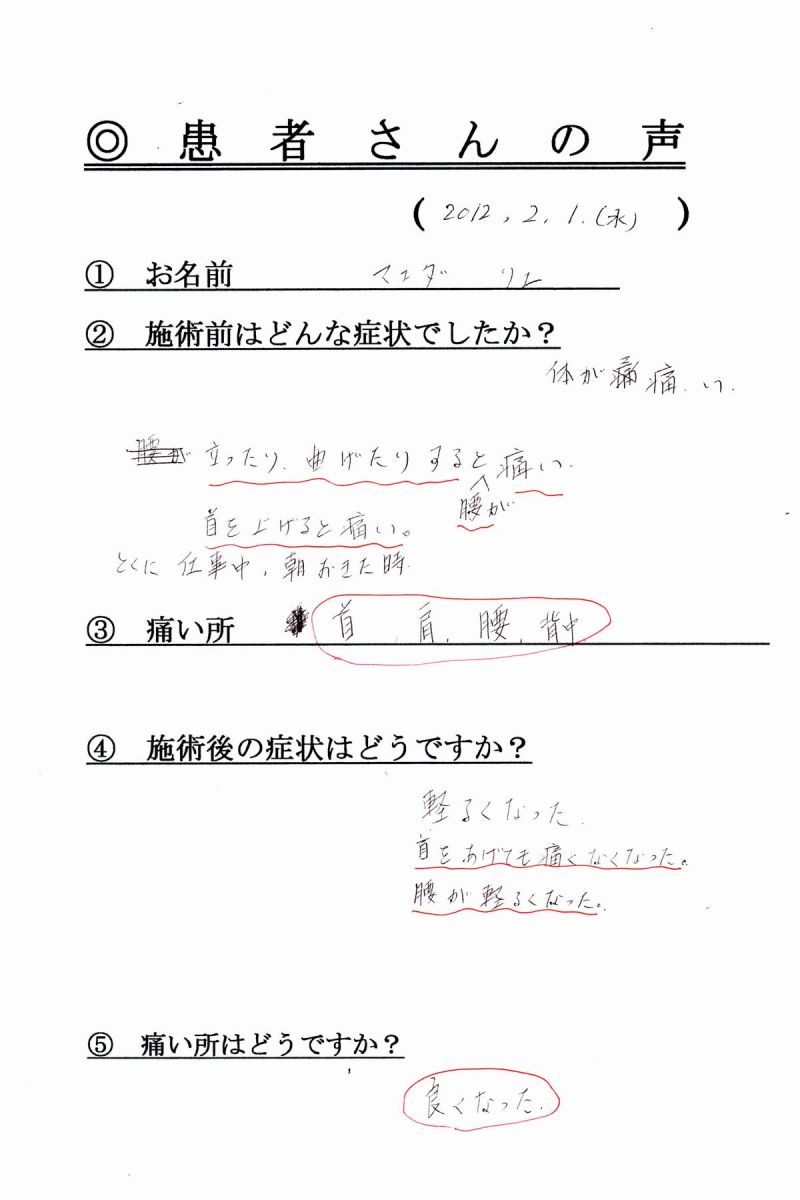 ◎ 患者さんの声
( 2012, 2, 1.(水) )
① お名前 マエダ リエ
② 施術前はどんな症状でしたか？
体が痛い.
立ったり、曲げたりすると腰が痛い.
首を上げると痛い。
とくに 仕事中、朝おきた時.
③ 痛い所 首、肩、腰、背中
④ 施術後の症状はどうですか？
軽るくなった.
首をあげても痛くなくなった。
腰が軽るくなった。
⑤ 痛い所はどうですか？
良くなった.